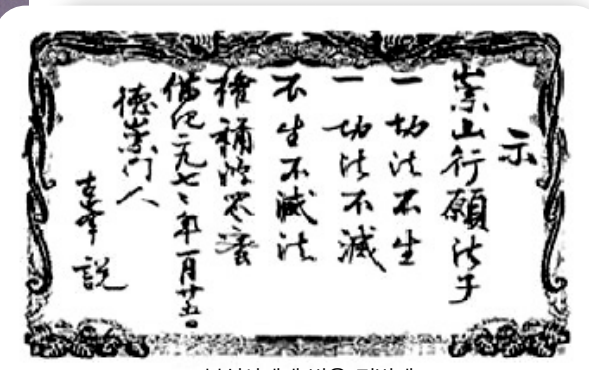 示
崇山行願法子
一切法不生
一切法不滅
不生不滅法
是名波羅蜜
佛紀二九七六年一月廿五日
德崇門人
古峯 說